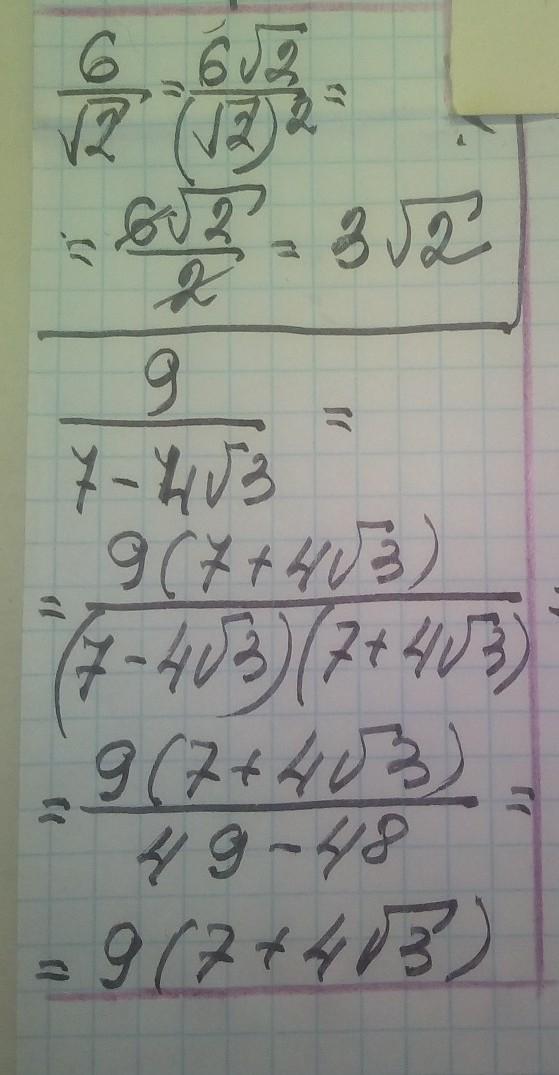 6/√2 = 6√2/(√2)² =
= 6√2/2 = 3√2
9/(7-4√3) =
= 9(7+4√3)/((7-4√3)(7+4√3)) =
= 9(7+4√3)/(49-48) =
= 9(7+4√3)